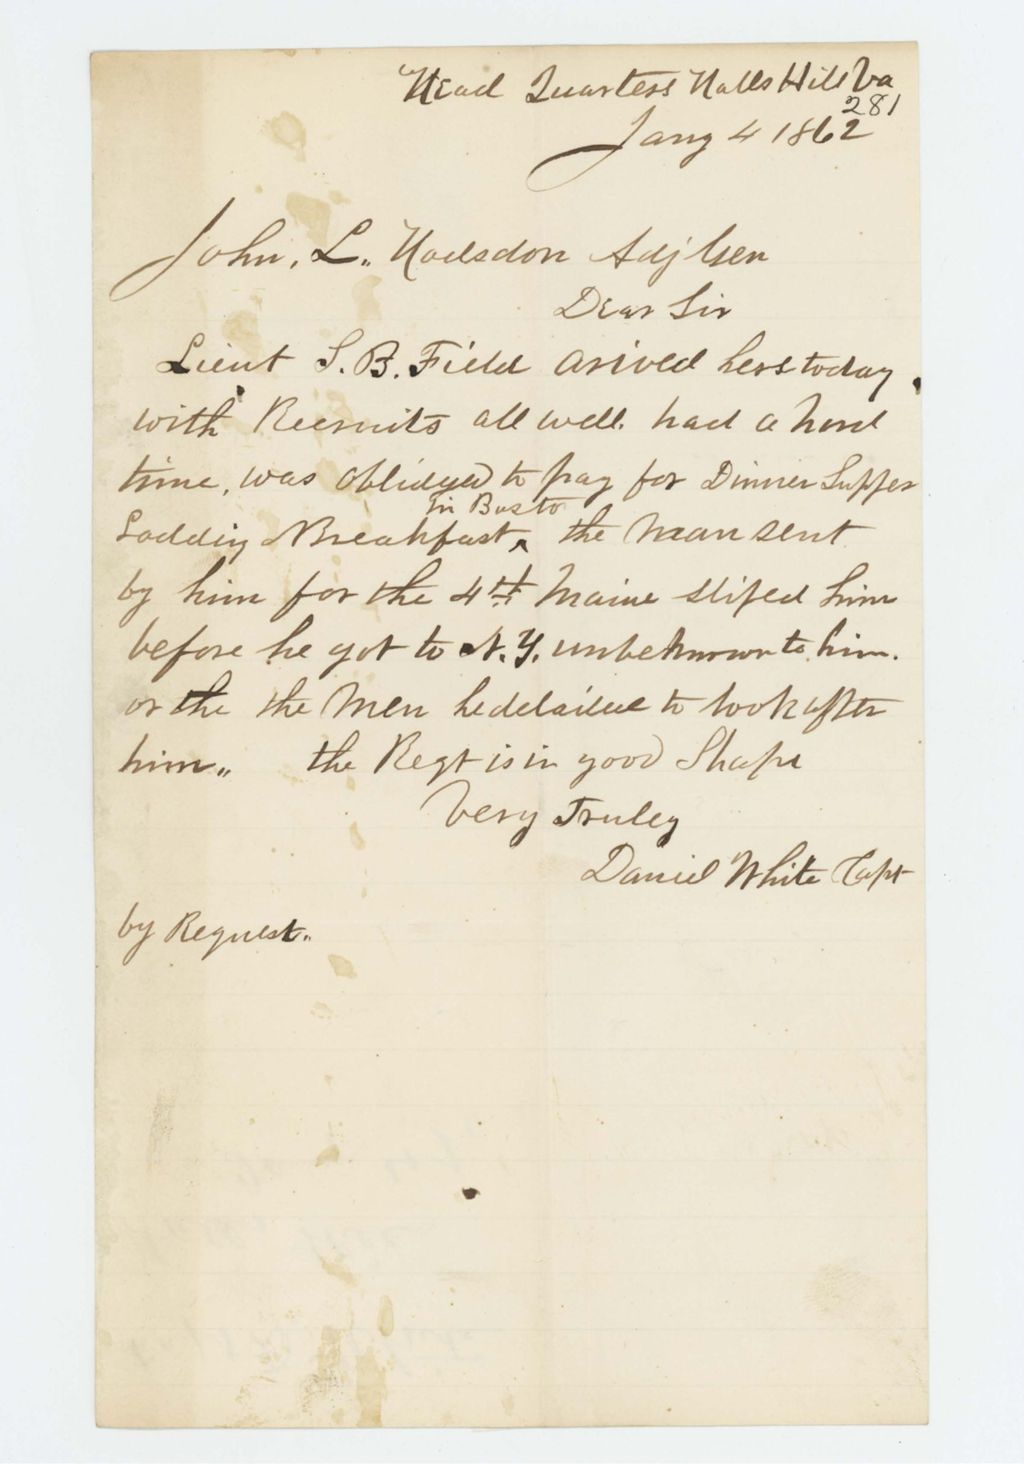 Head Quarters Halls Hill Va
281
Jany 4 1862
John. L. Hodsdon Adj Gen
Dear Sir
Lieut S. B. Field arived here today
with Recruits all well. had a hard
time, was oblidged to pay for Dinner Supper
in Bosto
Loddig & Breakfast ‸ the Man sent
by him for the 4th Maine sliped him
before he got to N.Y. unbeknown to him.
or the the Men he detailed to look after
him.. the Regt is in good Shape
Very Truley
Daniel White Capt
by Request..